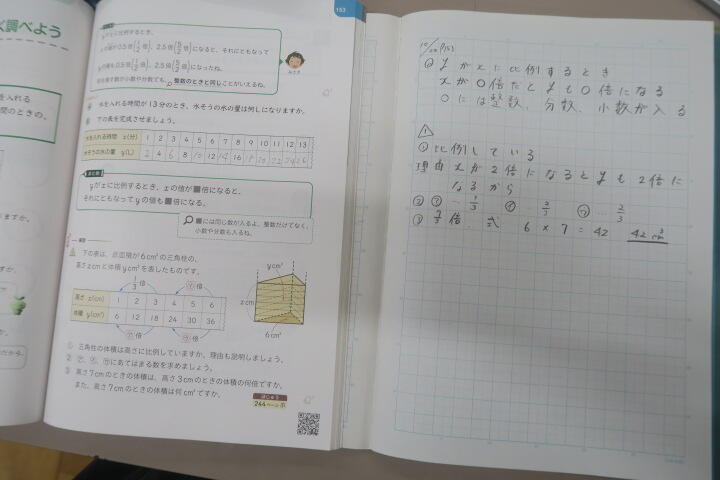 く調べよう
を入れる
の時間の、
153
yがxに比例するとき、
xの値が0.5倍(1/2倍)、2.5倍(5/2倍)になると、それにともなって
yの値も0.5倍(1/2倍)、2.5倍(5/2倍)になったね。
整数のときと同じことがいえるね。
みさき
水を入れる時間が13分のとき、水そうの水の量は何Lになりますか。
下の表を完成させましょう。
水を入れる時間 x(分) 1 2 3 4 5 6 7 8 9 10 11 12 13
水そうの水の量 y(L) 2 4 6 8 10 12 14 16 18 20 22 24 26
まとめ
yがxに比例するとき、xの値が■倍になると、
それにともなってyの値も■倍になる。
■には同じ数が入るよ。整数だけでなく、
小数や分数も入るね。
下の表は、底面積が6cm²の三角柱の、
高さxcmと体積ycm³を表したものです。
1/3倍 ㋑倍
高さ x(cm) 1 2 3 4 5 6
体積 y(cm³) 6 12 18 24 30 36
㋐倍 ㋒倍
ycm³
xcm
6cm²
① 三角柱の体積は高さに比例していますか。理由も説明しましょう。
② ㋐、㋑、㋒にあてはまる数を求めましょう。
③ 高さ7cmのときの体積は、高さ3cmのときの体積の何倍ですか。
また、高さ7cmのときの体積は何cm³ですか。
ほじゅう
244ページ
P153
yがxに比例するとき
xが〇倍だとyも〇倍になる
〇には整数、分数、小数が入る
①比例している
理由 xが2倍になるとyも2倍に
なるから
② ㋐…1/3 ㋑…2/3 ㋒…2/3
③ 7/3倍 式 6×7=42 42cm³